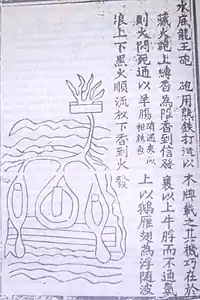 水底龍王砲 砲用熟鐵打造以木牌載之其機巧在於
藏火砲上縛香為限香到信發裹以上牛脬而不通氣
則火悶死通以羊腸上以鵝雁翅為浮隨波
浪上下黑火順流放下香到火發